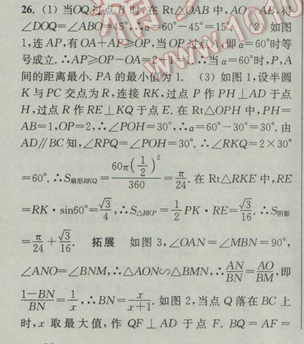 26. (1) 当OQ过点B时,在Rt△OAB中,AO=AB,得
∠DOQ=∠ABO=45°,∴α=60°-45°=15°. (2) 如图
1,连AP,有OA+AP≥OP,当OP过点A,即α=60°时等
号成立.∴AP≥OP-OA=2-1=1,∴当α=60°时,P,A
间的距离最小. PA的最小值为1. (3) 如图1,设半圆
K与PC交点为R,连接RK,过点P作PH⊥AD于点
H,过点R作RE⊥KQ于点E.在Rt△OPH中,PH=
AB=1,OP=2,∴∠POH=30°,∴α=60°-30°=30°.由
AD∥BC知,∠RPQ=∠POH=30°.∴∠RKQ=2×30°
=60°.∴S扇形RKQ=60π(1/2)²/360=π/24.在Rt△RKE中,RE
=RK·sin60°=√3/4,∴S△RKP=1/2 PK·RE=√3/16.∴S阴影
=π/24+√3/16. 拓展 如图3,∠OAN=∠MBN=90°,
∠ANO=∠BNM,∴△AON∽△BMN,∴AN/BN=AO/BM,即
1-BN/BN=1/x,∴BN=x/x+1.如图2,当点Q落在BC上
时,x取最大值,作QF⊥AD于点F. BQ=AF=